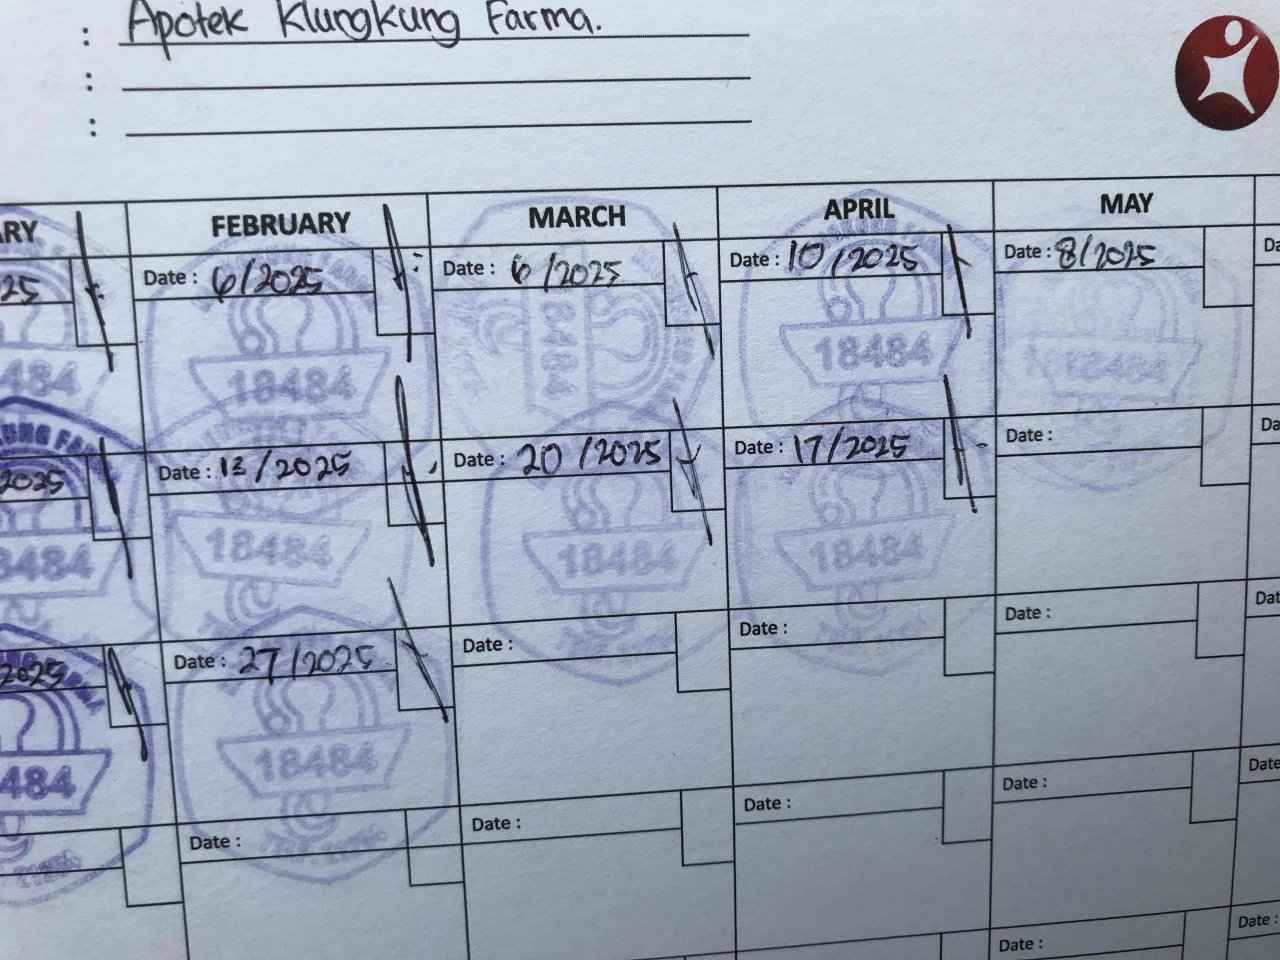 : Apotek Klungkung Farma.
:
:
ARY FEBRUARY MARCH APRIL MAY
25 Date : 6/2025 Date : 6/2025 Date : 10/2025 Date : 8/2025 Da
484 18484 18484 18484 18484
2025 Date : 13/2025 Date : 20/2025 Date : 17/2025 Date : Da
8484 18484 18484 18484
2025 Date : 27/2025 Date : Date : Date : Dat
484 18484
Date : Date : Date : Date : Date
Date : Date :